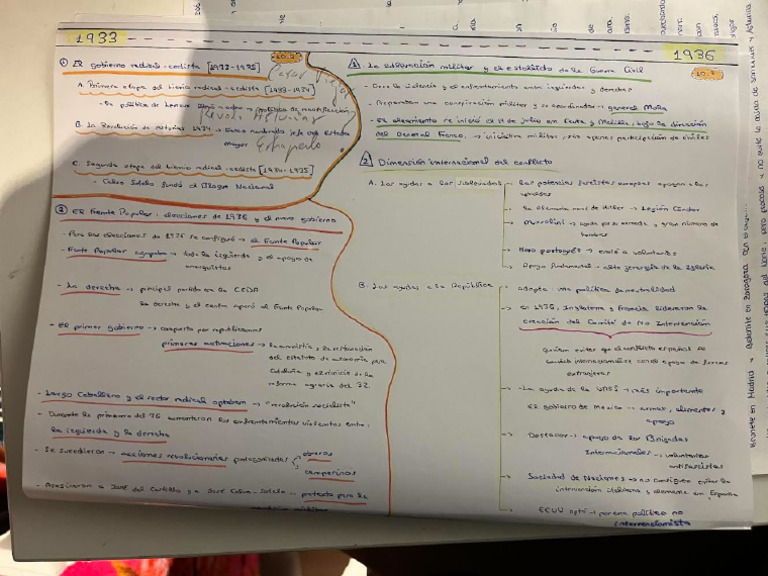 1933
10.2
① El gobierno radical-cedista [1933-1935]
A. Primera etapa del bienio radical-cedista [1933-1934]
B. La Revolución de Asturias 1934 → Franco nombrado jefe del estado
mayor
Estraperlo
C. Segunda etapa del bienio radical-cedista [1934-1935]
- Calvo Sotelo fundó el Bloque Nacional
② El Frente Popular: elecciones de 1936 y el nuevo gobierno
- Para las elecciones de 1936 se configuró → el Frente Popular
- Frente Popular agrupaba → toda la izquierda y el apoyo de
anarquistas
- La derecha → principal partido en la CEDA
la derecha y el centro aparó al Frente Popular
- El primer gobierno → compuesto por republicanos
primeras motivaciones → la amnistía y la restauración
del estatuto de autonomía para
Cataluña y el reinicio de la
reforma agraria del 32.
- Largo Caballero y el sector radical optaban → "revolución socialista"
- Durante la primavera del 36 aumentaron los enfrentamientos violentos entre
la izquierda y la derecha
- Se sucedieron → acciones revolucionarias protagonizadas
obreros
campesinos
- Asesinaron a José del Castillo y a José Calvo-Sotelo ... pretexto para la
1936
10.3
1 La sublevación militar y el estallido de la Guerra Civil
- Crece la violencia y el enfrentamiento entre izquierdas y derechas
- Preparaban una conspiración militar y se coordinaba → general Mola
- El alzamiento se inició el 17 de julio en Ceuta y Melilla, bajo la dirección
del General Franco, → iniciativa militar, con apenas participación de civiles
2 Dimensión internacional del conflicto
A. Las ayudas a los sublevados
Las potencias fascistas europeas apoyan a los
la Alemania nazi de Hitler → Legión Cóndor
Mussolini → ayuda armada y gran número de
hombres
portugués → envió a voluntarios
Apoyo fundamental → alta jerarquía de la Iglesia
B. Las ayudas a la República
adopta una política de neutralidad
En 1936, Inglaterra y Francia lideraron la
creación del Comité de No Intervención
quieren evitar que el conflicto español se
con el apoyo de fuerzas
extranjeras
- La ayuda de la URSS → más importante
El gobierno de Mexico → armas, alimentos y
apoyo
Destacar → apoyo de las Brigadas
Internacionales → voluntarios
antifascistas
Sociedad de Naciones → no consiguió evitar la
intervención italiana y alemana en España
EEUU optó → por una política no
intervencionista